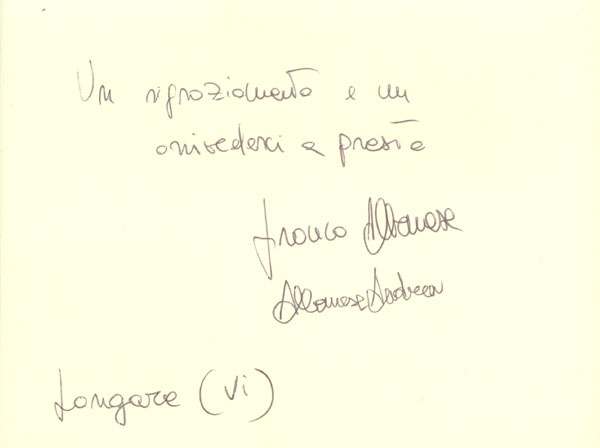 Un ringraziamento e un
arrivederci a presto
Franco Albanese
Albanese Andrea
Longare (Vi)